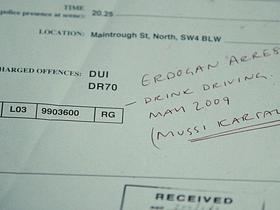 TIME
police presence at scene: 20.25
LOCATION: Maintrough St, North, SW4 BLW
CHARGED OFFENCES: DUI
DR70
L03 9903600 RG
ERDOGAN ARRES
DRINK DRIVING.
MAY 2009
(MUSSI KARTAL
RECEIVED